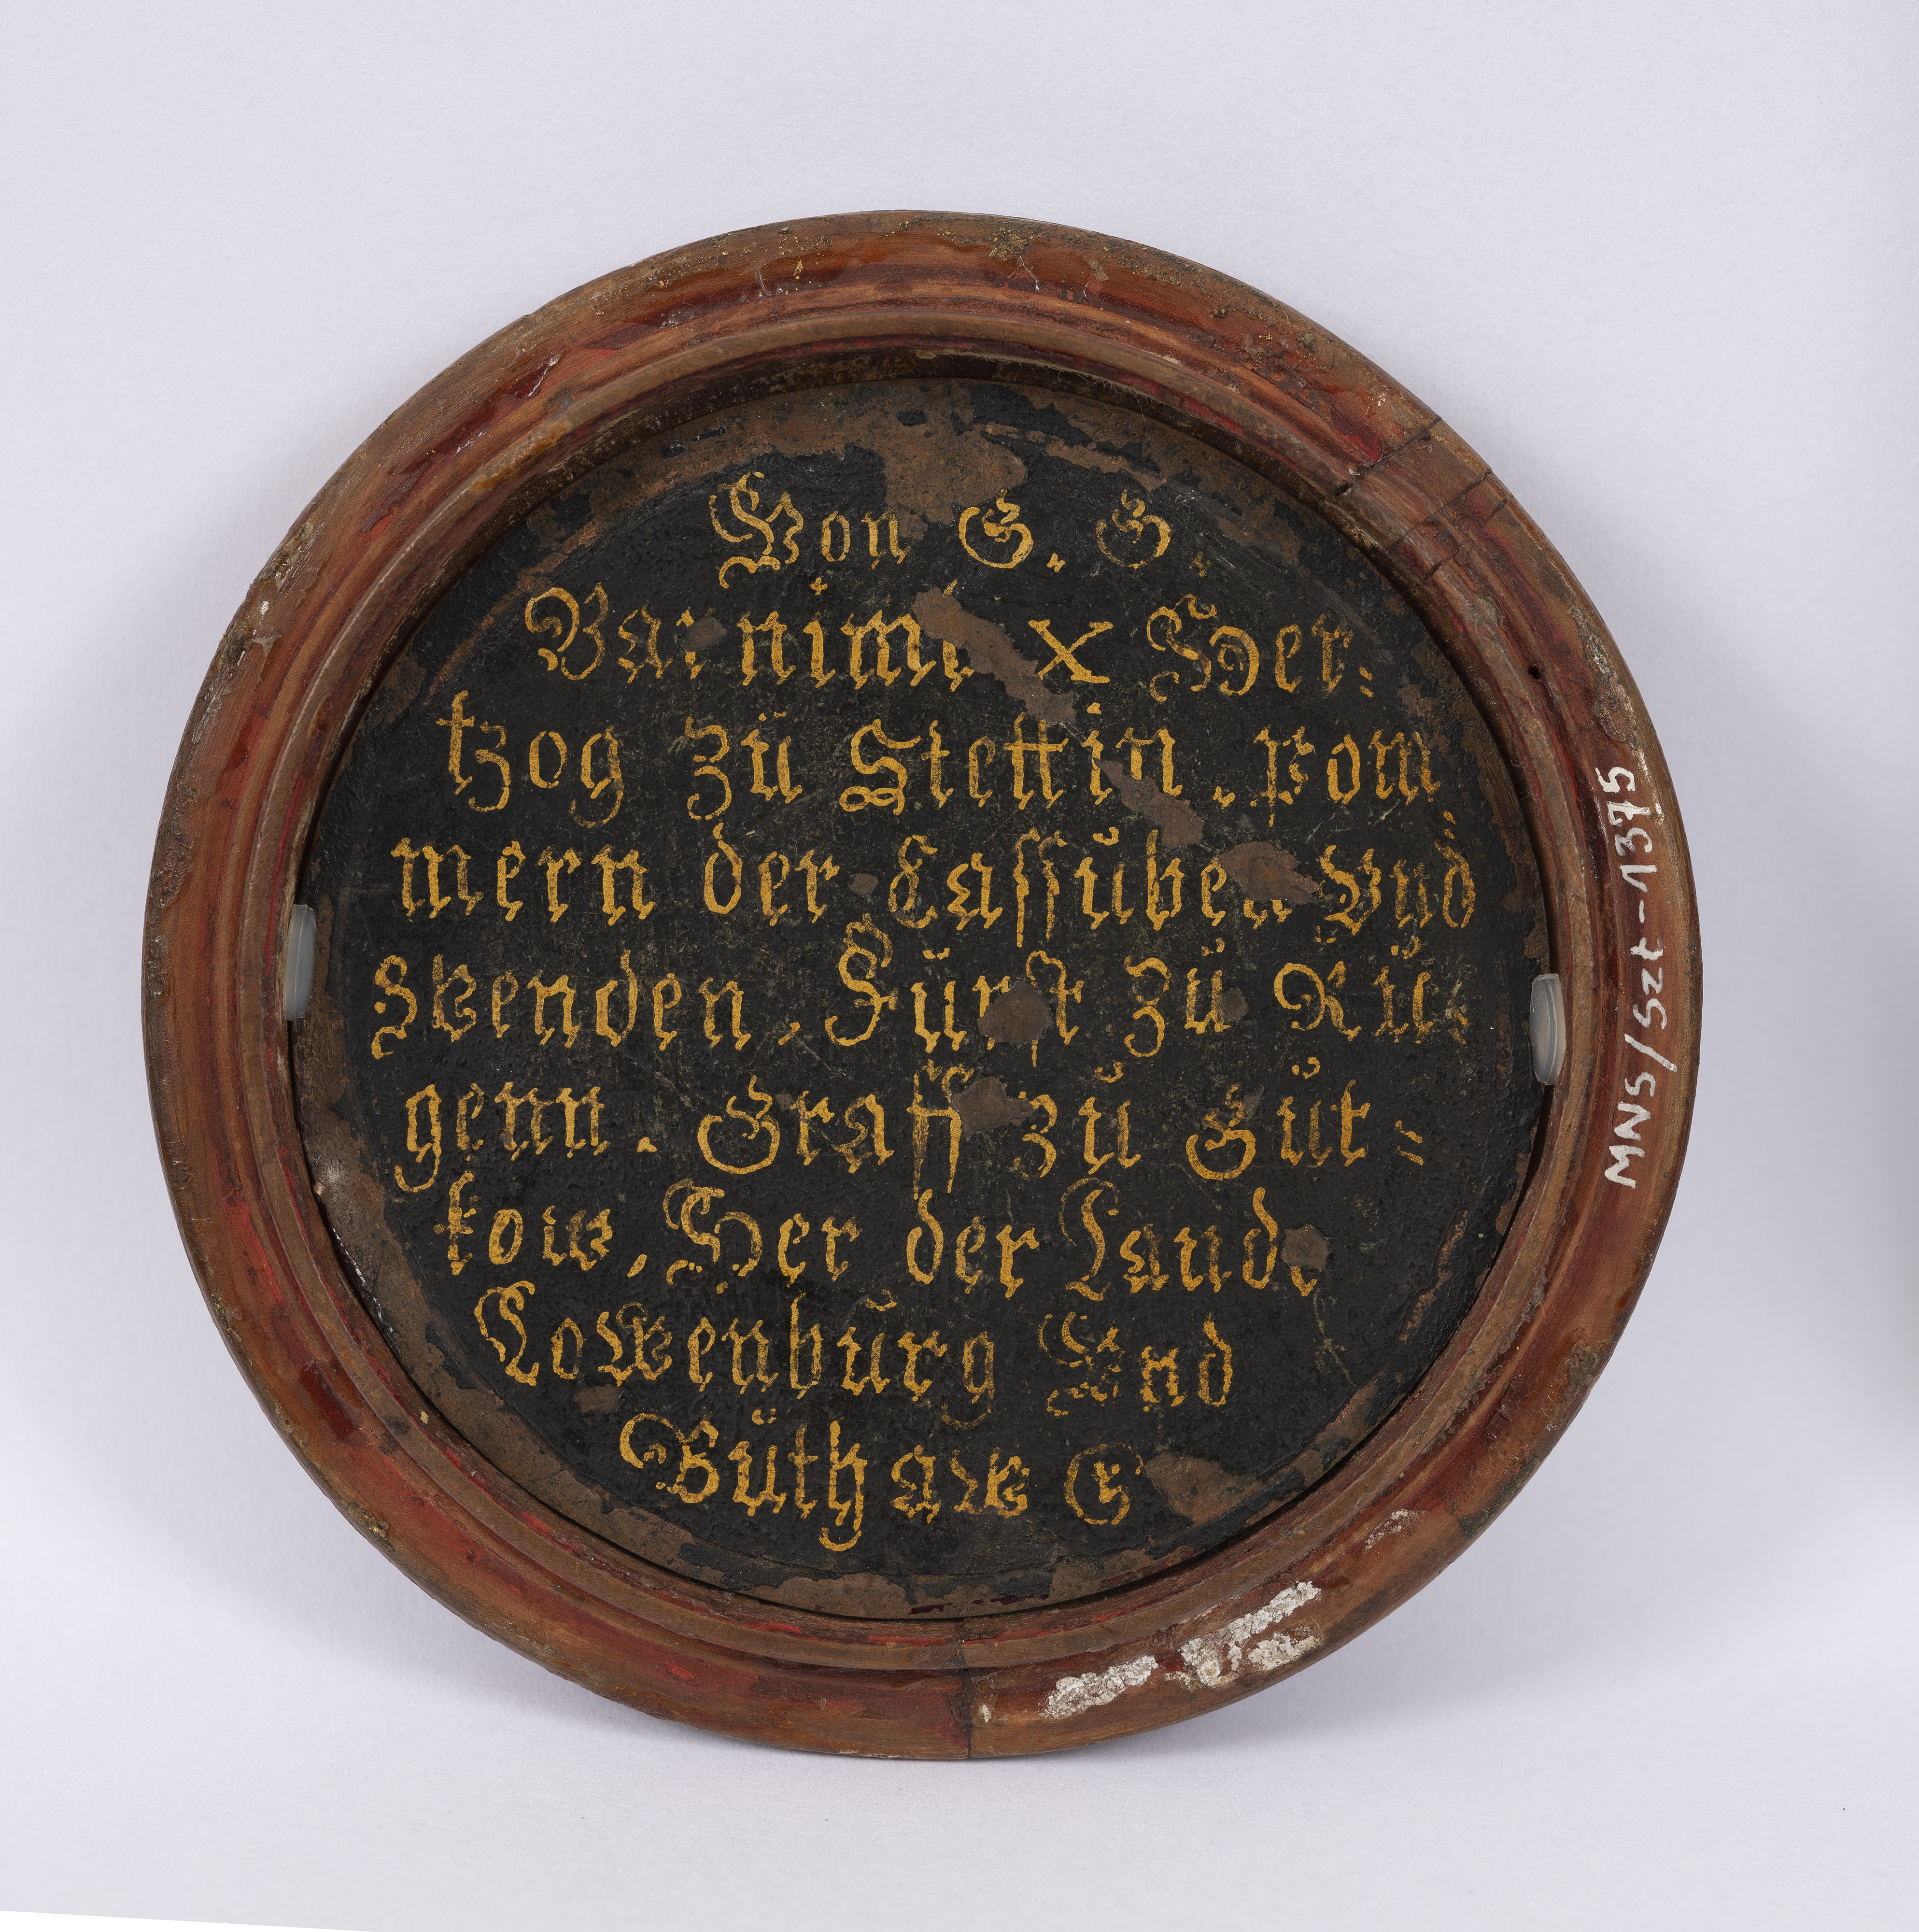 Von G. G.
Barnimi X Her:
tzog zü Stettin. pom
mern der Cassŭben Vnd
Wenden, Fürst zü Rü:
genn. Graff zŭ Gŭt=
kow, Her der Lande
Lowenbŭrg Vnd
Büthaw
MNS/Szt-1375